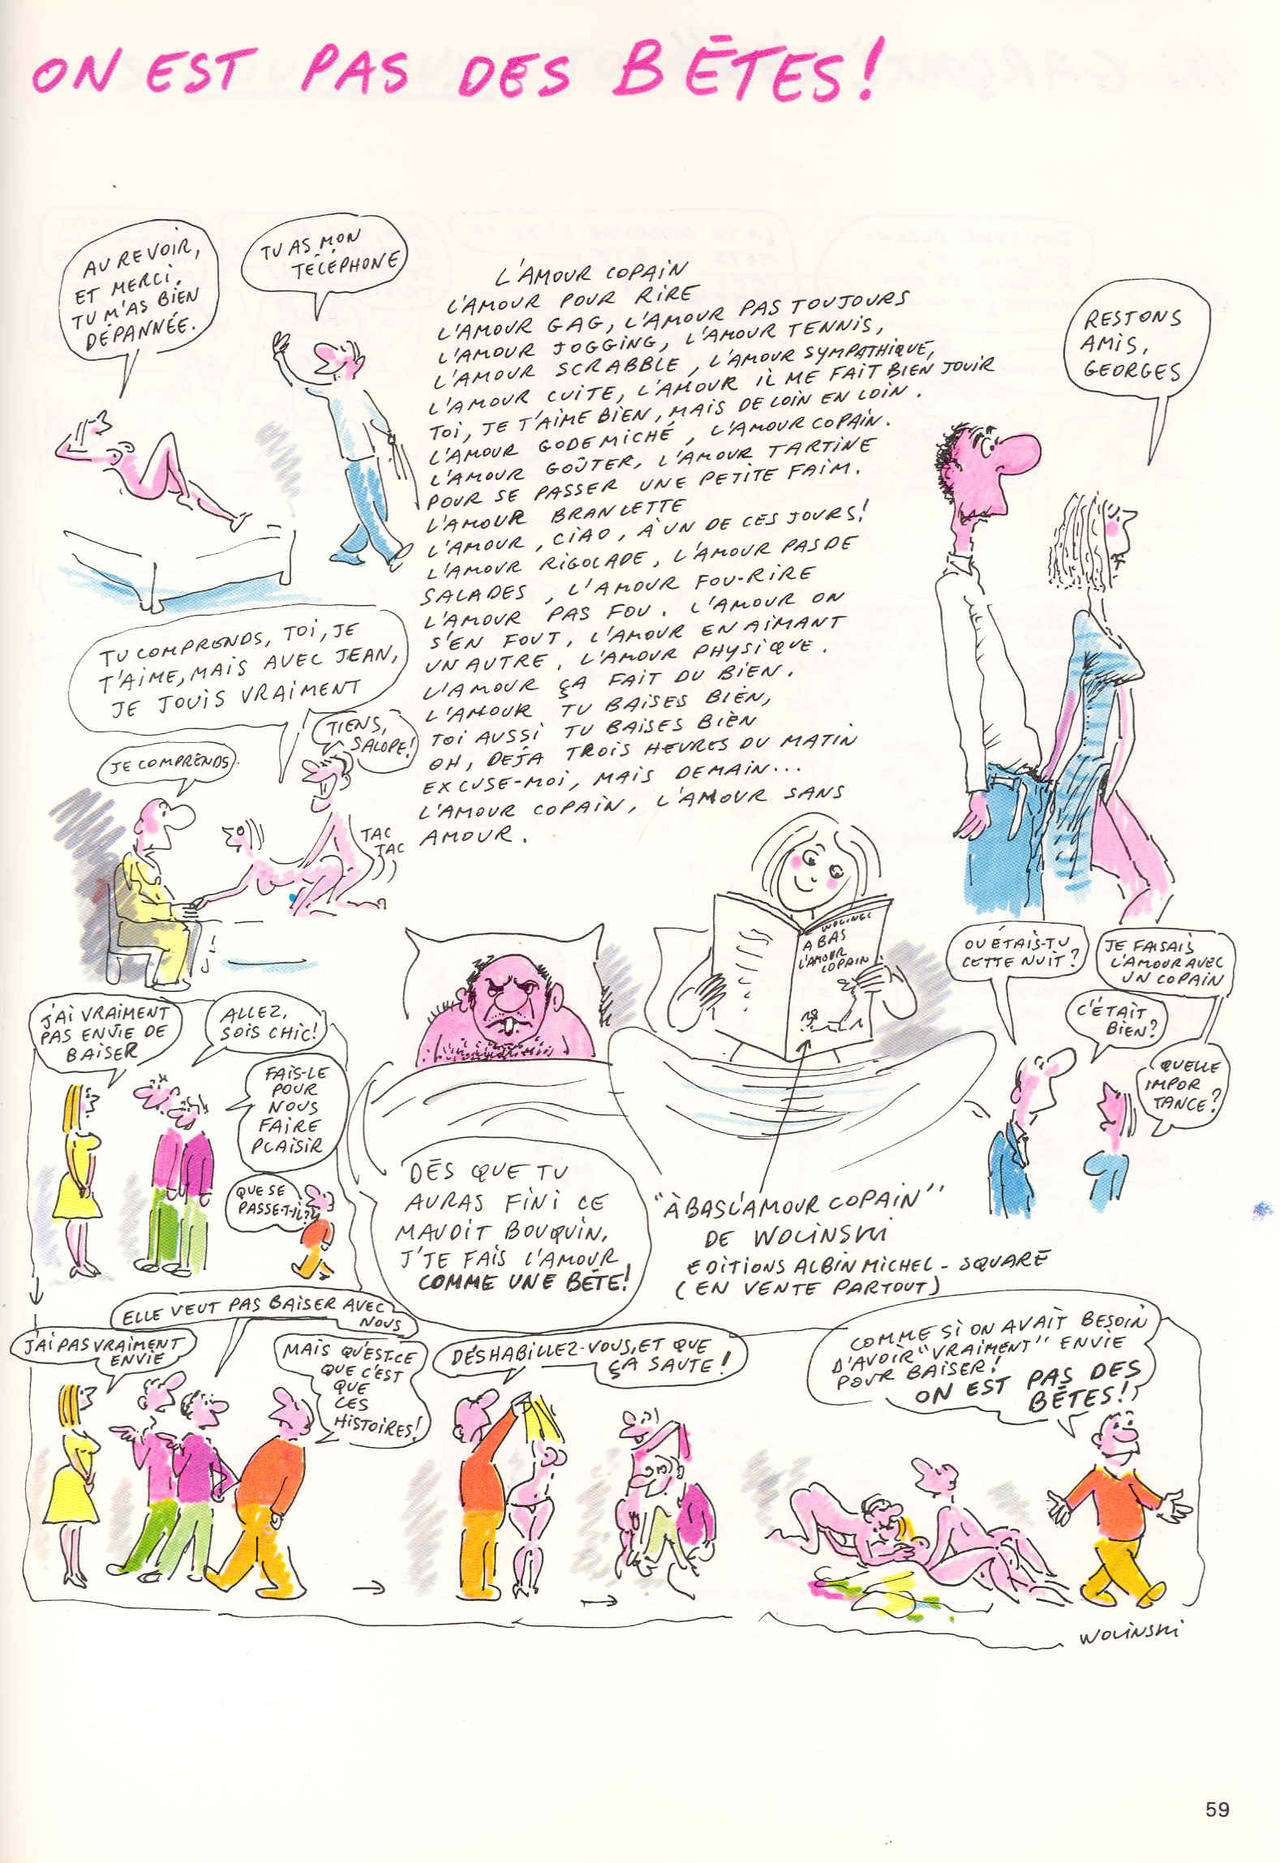 ON EST PAS DES BÊTES!
AU REVOIR,
ET MERCI.
TU M'AS BIEN
DÉPANNÉE.
TU AS MON
TÉLÉPHONE
L'AMOUR COPAIN
L'AMOUR POUR RIRE
L'AMOUR GAG, L'AMOUR PAS TOUJOURS
L'AMOUR JOGGING, L'AMOUR TENNIS,
L'AMOUR SCRABBLE, L'AMOUR SYMPATHIQUE,
L'AMOUR CUITE, L'AMOUR IL ME FAIT BIEN JOUIR
TOI, JE T'AIME BIEN, MAIS DE LOIN EN LOIN.
L'AMOUR GODEMICHÉ, L'AMOUR COPAIN.
L'AMOUR GOÛTER, L'AMOUR TARTINE
POUR SE PASSER UNE PETITE FAIM.
L'AMOUR BRANLETTE
L'AMOUR, CIAO, À UN DE CES JOURS!
L'AMOUR RIGOLADE, L'AMOUR PAS DE
SALADES, L'AMOUR FOU-RIRE
L'AMOUR PAS FOU. L'AMOUR ON
S'EN FOUT, L'AMOUR EN AIMANT
UN AUTRE. L'AMOUR PHYSIQUE.
L'AMOUR ÇA FAIT DU BIEN.
L'AMOUR TU BAISES BIEN,
TOI AUSSI TU BAISES BIEN
OH, DÉJÀ TROIS HEURES DU MATIN
EXCUSE-MOI, MAIS DEMAIN...
L'AMOUR COPAIN, L'AMOUR SANS
AMOUR.
RESTONS
AMIS,
GEORGES
TU COMPRENDS, TOI, JE
T'AIME, MAIS AVEC JEAN,
JE JOUIS VRAIMENT
JE COMPRENDS.
TIENS,
SALOPE!
TAC
TAC
WOLINSKI
A BAS
L'AMOUR
COPAIN
OÙ ÉTAIS-TU
CETTE NUIT?
JE FAISAIS
L'AMOUR AVEC
UN COPAIN
C'ÉTAIT
BIEN?
QUELLE
IMPOR
TANCE?
J'AI VRAIMENT
PAS ENVIE DE
BAISER
ALLEZ,
SOIS CHIC!
FAIS-LE
POUR
NOUS
FAIRE
PLAISIR
QUE SE
PASSE-T-IL?
DÈS QUE TU
AURAS FINI CE
MAUDIT BOUQUIN,
J'TE FAIS L'AMOUR
COMME UNE BÊTE!
"À BAS L'AMOUR COPAIN"
DE WOLINSKI
EDITIONS ALBIN MICHEL - SQUARE
(EN VENTE PARTOUT)
J'AI PAS VRAIMENT
ENVIE
ELLE VEUT PAS BAISER AVEC
NOUS
MAIS QU'EST-CE
QUE C'EST
QUE
CES
HISTOIRES!
DÉSHABILLEZ-VOUS, ET QUE
ÇA SAUTE!
COMME SI ON AVAIT BESOIN
D'AVOIR "VRAIMENT" ENVIE
POUR BAISER!
ON EST PAS DES
BÊTES!
WOLINSKI
59